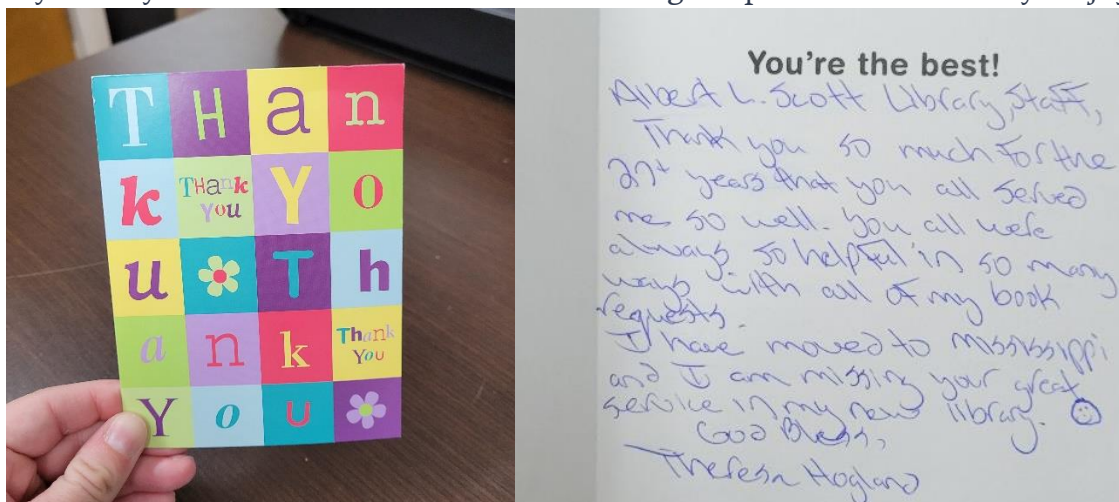 T H a n
k THank Y o
You
u T h
a n k Thank
You
Y o u
You're the best!
Albert L. Scott Library, Staff,
Thank you so much for the
27+ years that you all served
me so well. You all were
always so helpful in so many
ways with all of my book
requests.
I have moved to Mississippi
and I am missing your great
service in my new library.
God Bless,
Theresa Hogland